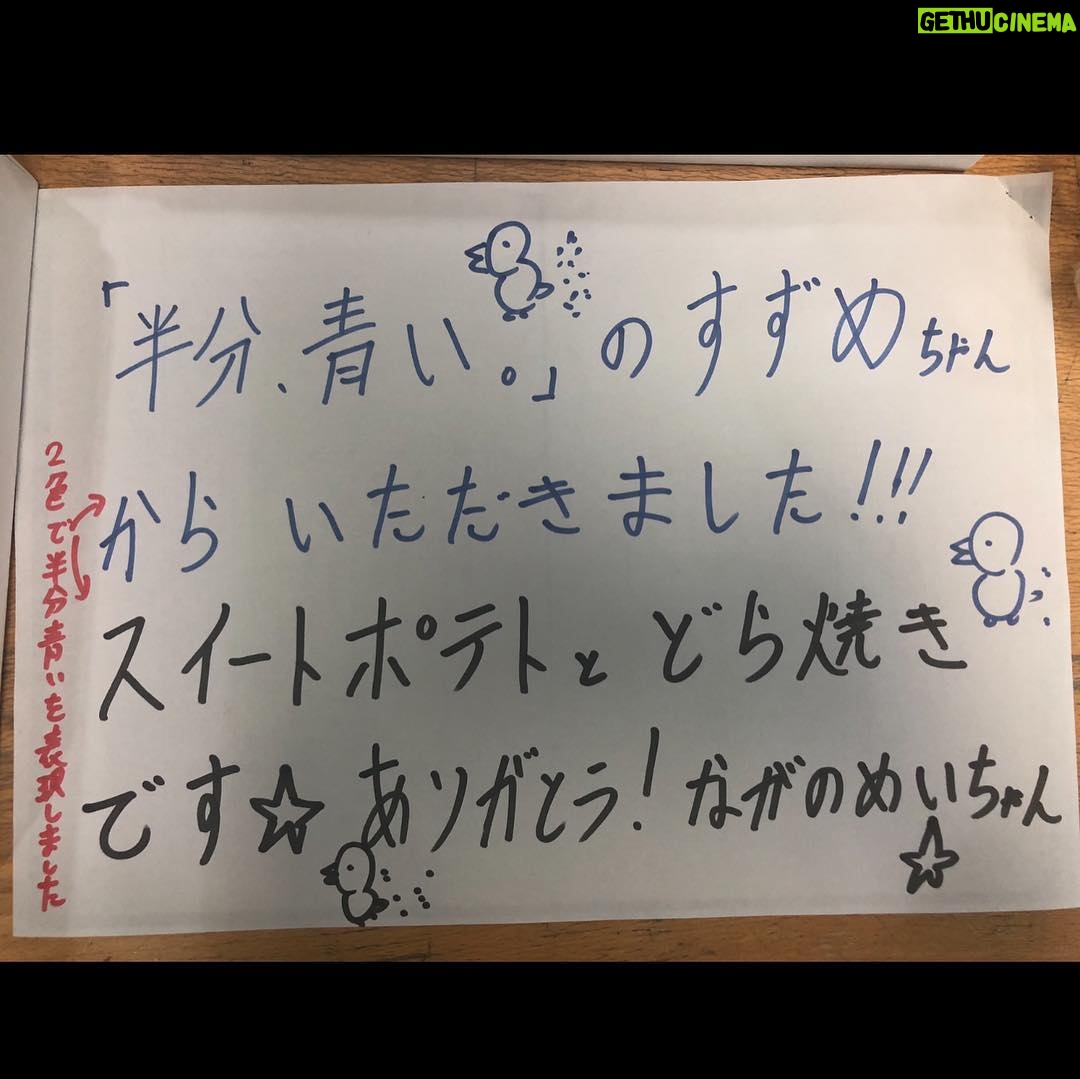 GETHUCINEMA
「半分、青い。」のすずめちゃん
からいただきました!!!
スイートポテトとどら焼き
です☆ありがとう!ながのめいちゃん
☆
2色で半分青いを表現しました